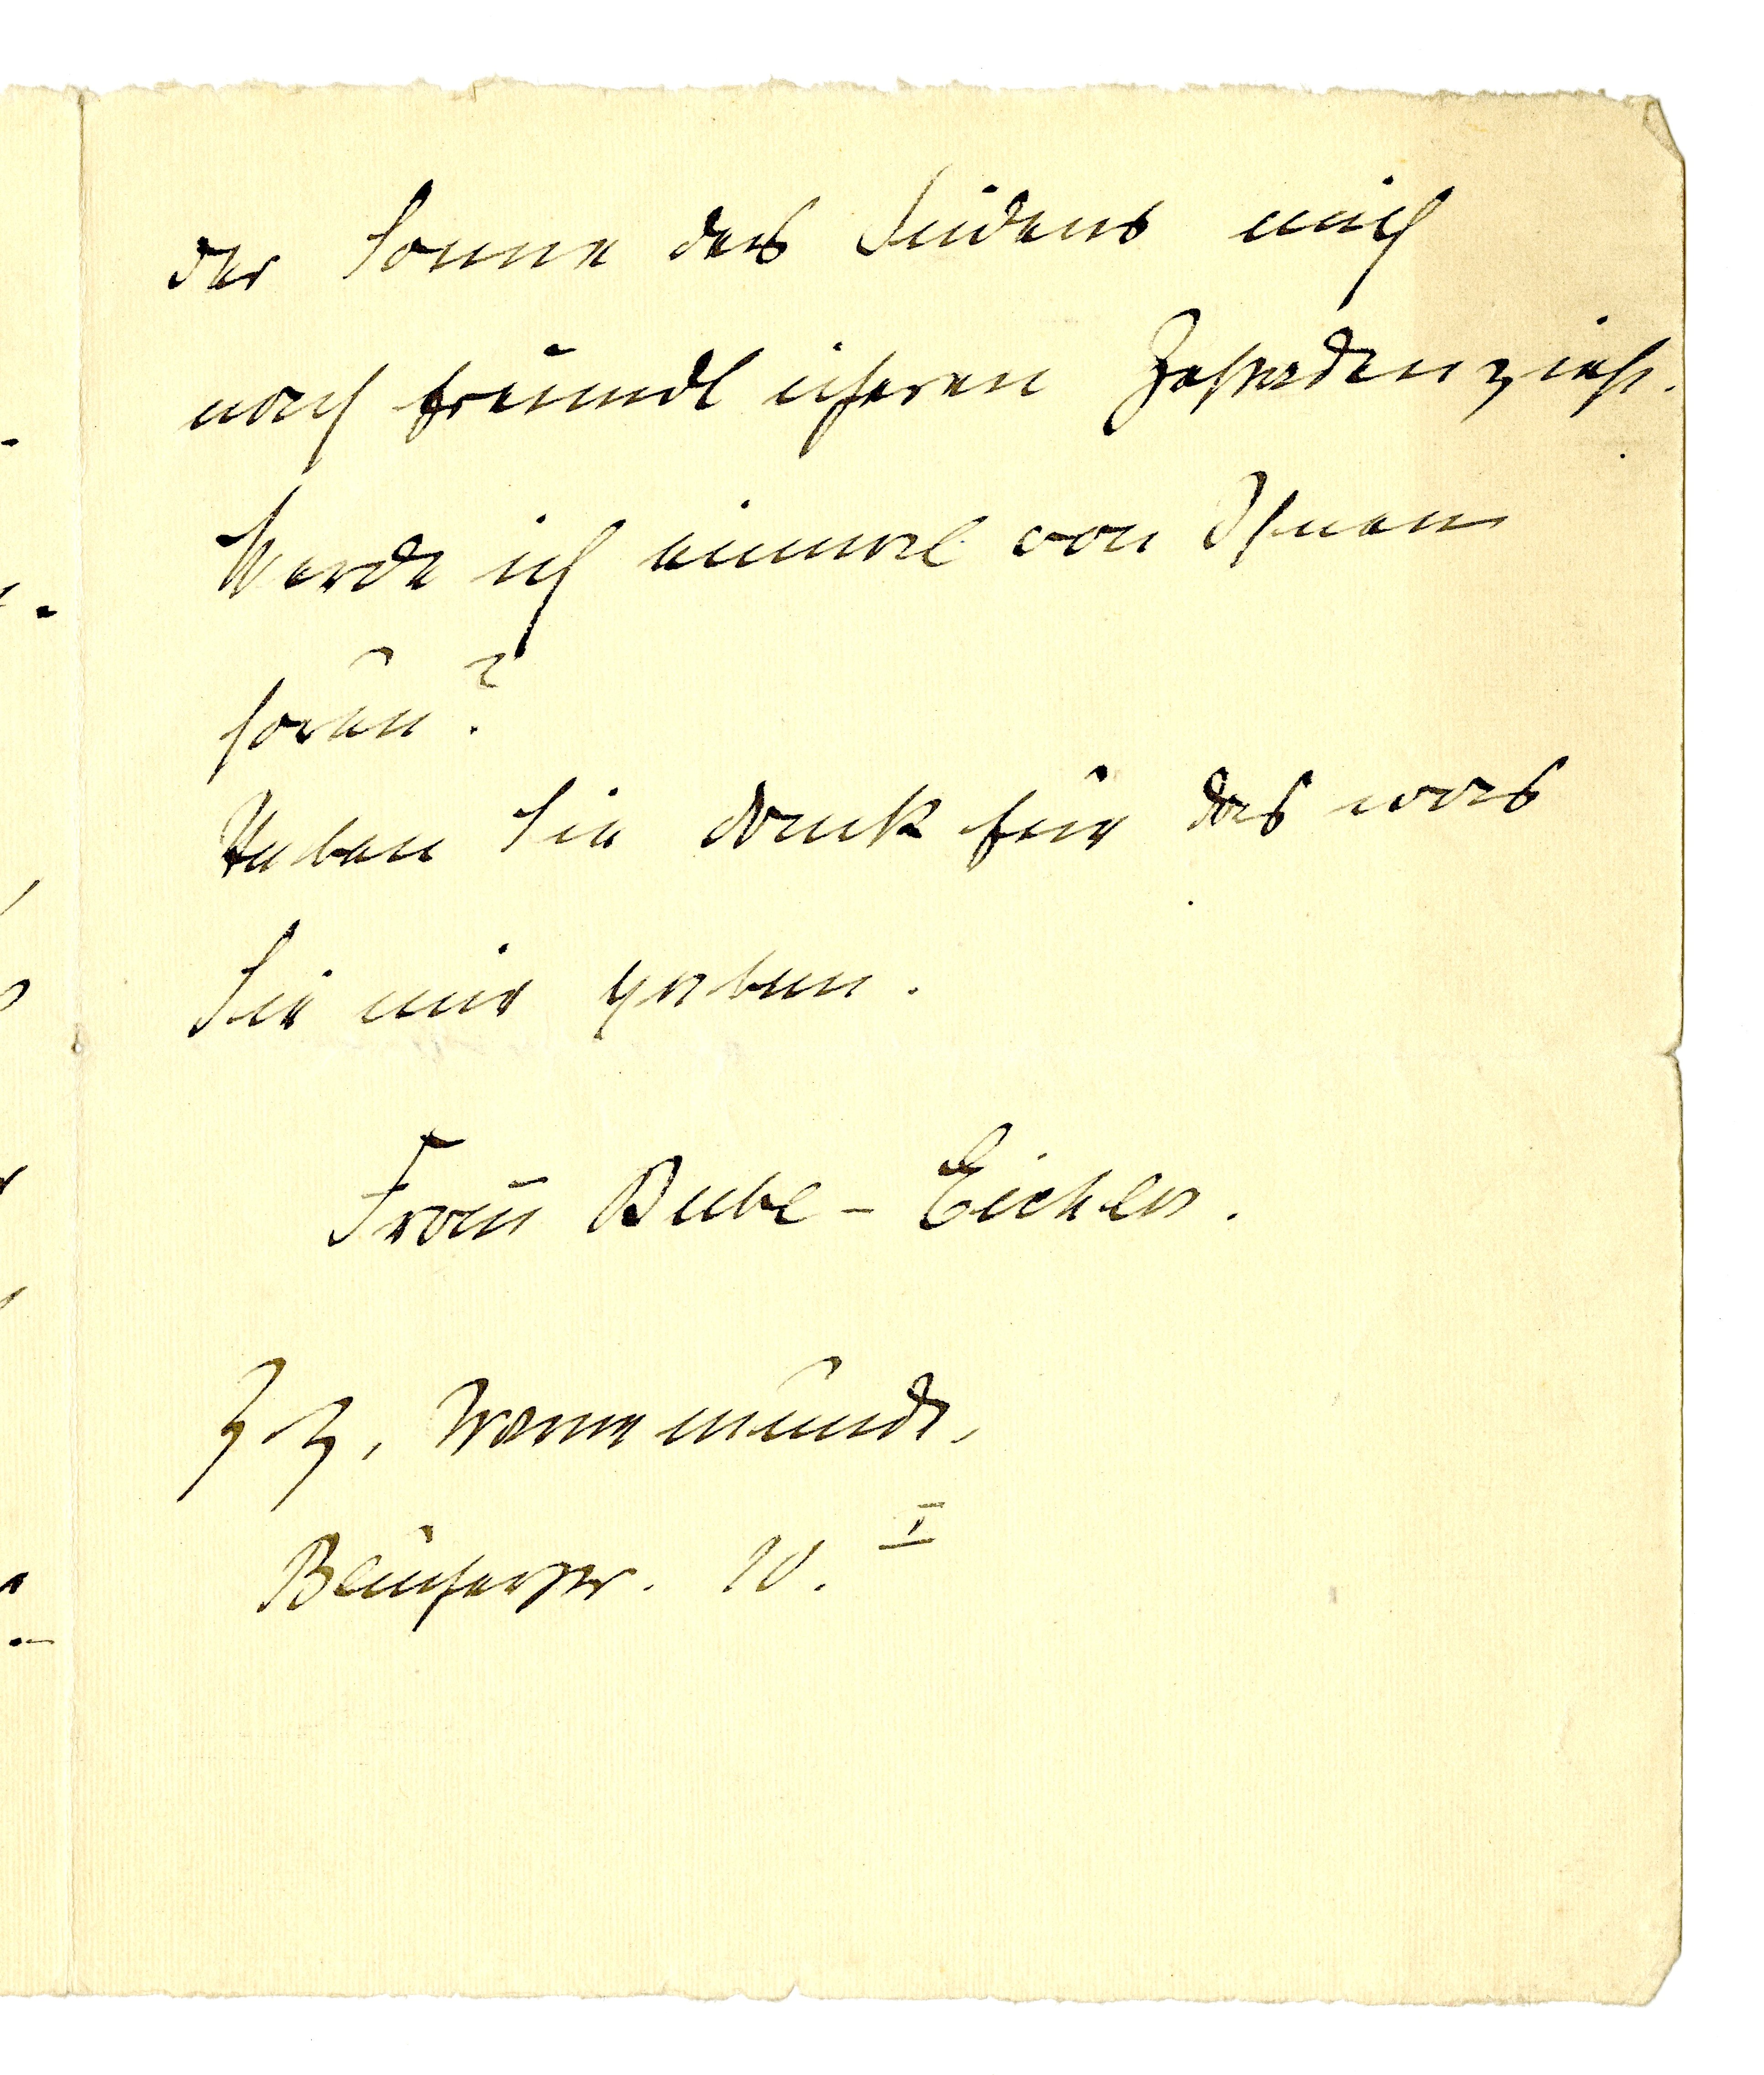 der Sonne des Südens mich
nach freundlicheren Gestaden zieht.
Werde ich einmal von Ihnen
hören?
Haben Sie dank für das was
Sie mir gaben.
Frau Bube - Eichler.
z. Z, Warnemünde,
Blücherstr. 10. I